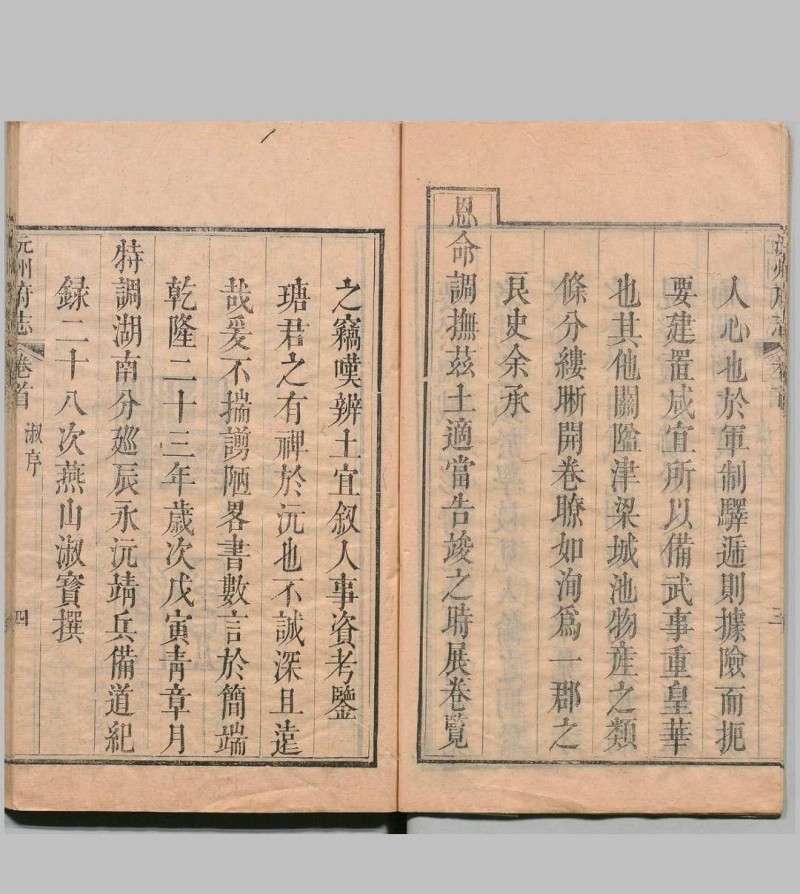 人心也於軍制驛遞則據險而扼
要建置咸宜所以備武事重皇華
也其他關隘津梁城池物産之類
條分縷晰開卷瞭如洵爲一郡之
良史余承
恩命調撫茲土適當告竣之時展卷覽
之竊嘆辨土宜叙人事資考鑒
瑭君之有裨於沅也不誠深且遠
哉爰不揣謭陋畧書數言於簡端
乾隆二十三年歲次戊寅青章月
特調湖南分廵辰永沅靖兵備道紀
録二十八次燕山淑寳撰
沅州府志
卷首
淑序
四